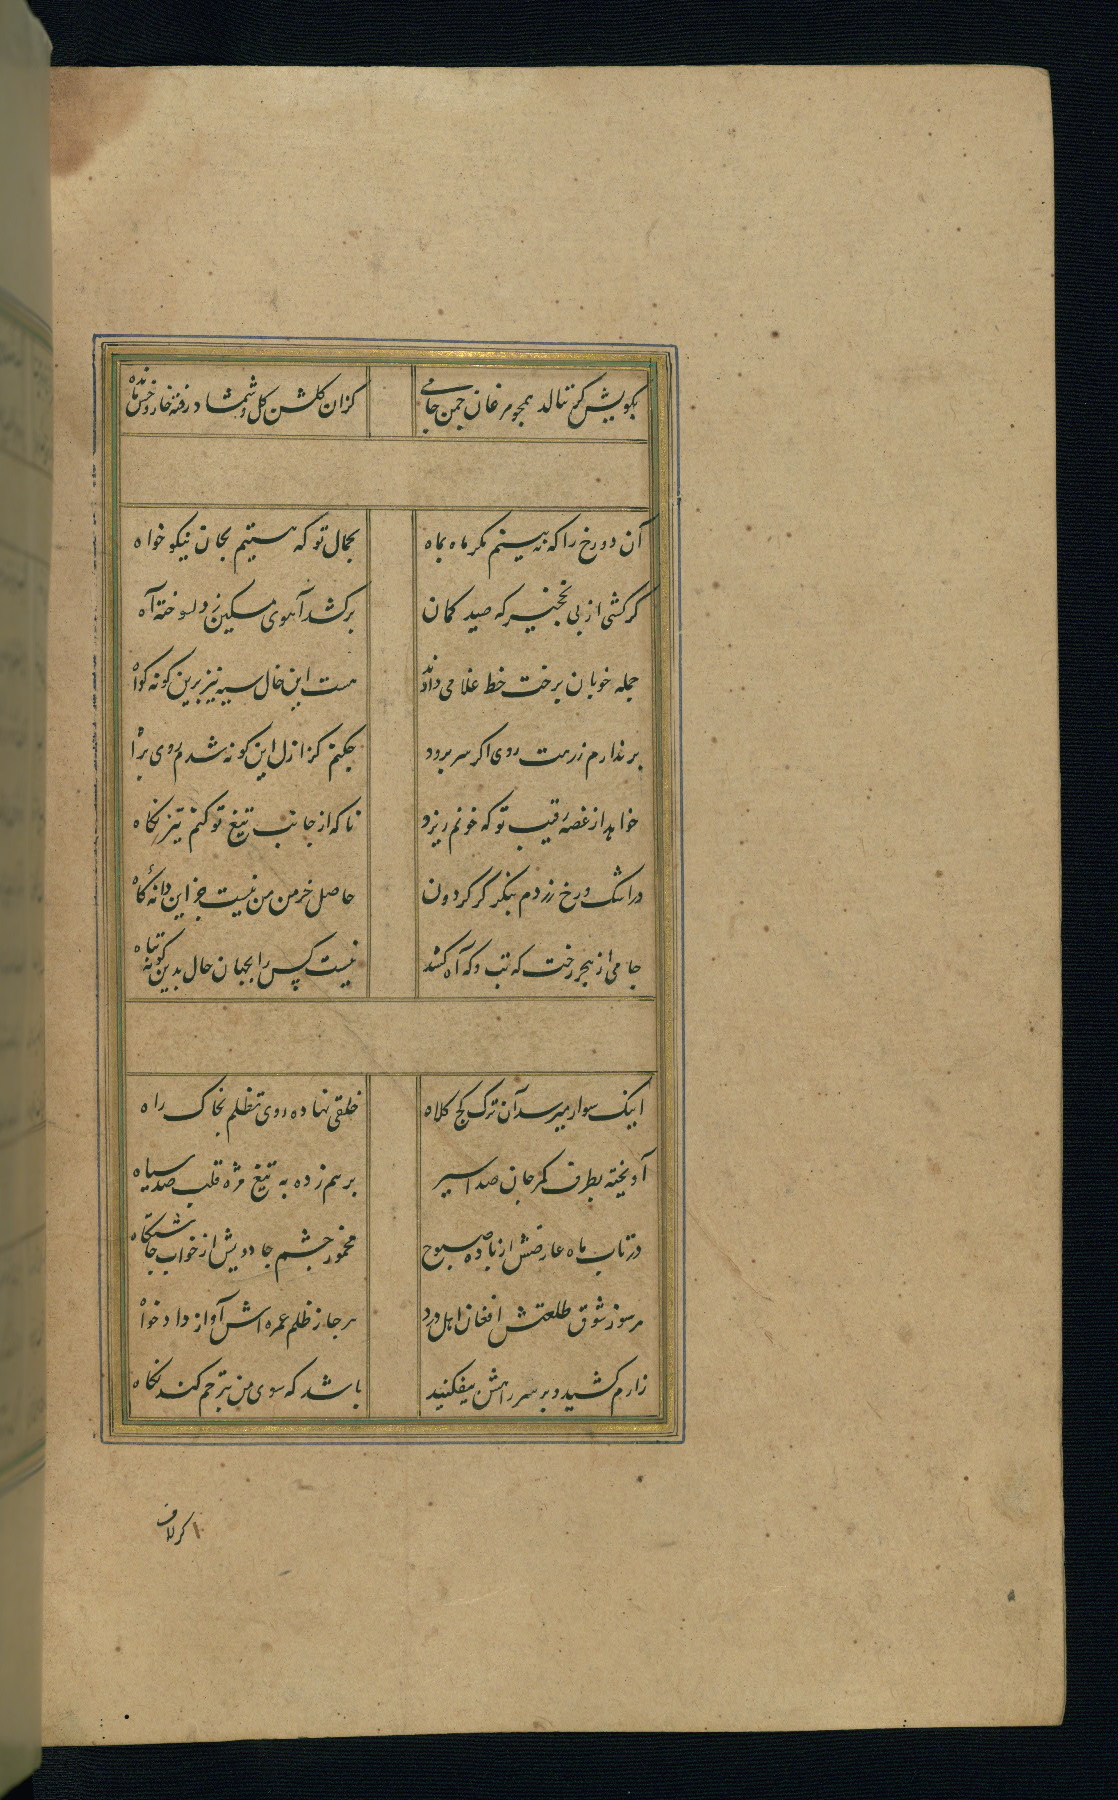 بکویش کم تنالد همچو مرغان چمن جامی کزان کلشن کل و شمشاد رفته خار و خس مانده
آن دو رخ را که به بینم مکر ماه بماه بجمال تو که هستیم بجان نیکو خواه
کر کشی از پی نخجیر که صید کمان برکشد آهوی مسکین ز دل سوخته آه
جمله خوبان برخت خط غلامی دادند هست این خال سیه نیز برین کونه کواه
برندارم ز رهت روی اکر سر برود چکنم کز ازل این کونه شدم روی براه
خواهد از غصه رقیب تو که خونم ریزد تا که از جانب تیغ تو کنم تیز نکاه
در اشک و رخ زردم بنکر کز کردون حاصل خرمن من نیست جز این دانه کاه
جامی از هجر رخت که تب و که آه کشد نیست کس را بجهان حال بدین کونه تباه
اینک سوار میرسد آن ترک کج کلاه خلقی نهاده روی تظلم بخاک راه
آویخته بطرف کمر جان صد اسیر برهم زده به تیغ مژه قلب صد سپاه
در تاب ماه عارضش از باده صبوح مخمور چشم جادویش از خواب چاشتکاه
هر سو ز شوق طلعتش افغان اهل درد هر جا ز ظلم غمزه اش آواز دادخواه
زارم کشید و بر سر راهش بیفکنید باشد که سوی من بترحم کند نکاه
کر لاف